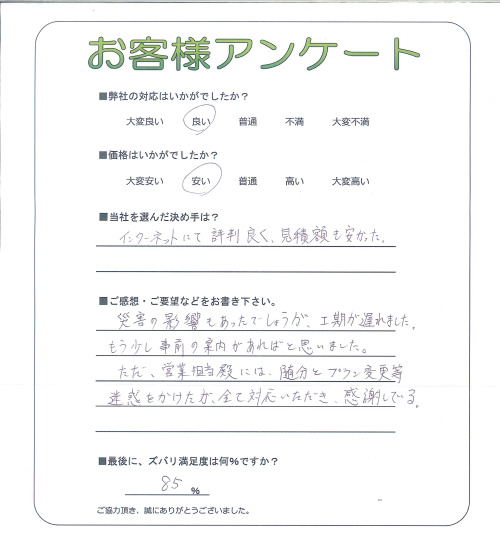 お客様アンケート
■弊社の対応はいかがでしたか？
大変良い 良い 普通 不満 大変不満
■価格はいかがでしたか？
大変安い 安い 普通 高い 大変高い
■当社を選んだ決め手は？
インターネットにて評判良く、見積額も安かった。
■ご感想・ご要望などをお書き下さい。
災害の影響もあったでしょうが、工期が遅れました。
もう少し事前の案内があればと思いました。
ただ、営業担当殿には、随分とプラン変更等
迷惑をかけたが、全て対応いただき、感謝してる。
■最後に、ズバリ満足度は何%ですか？
85 %
ご協力頂き、誠にありがとうございました。